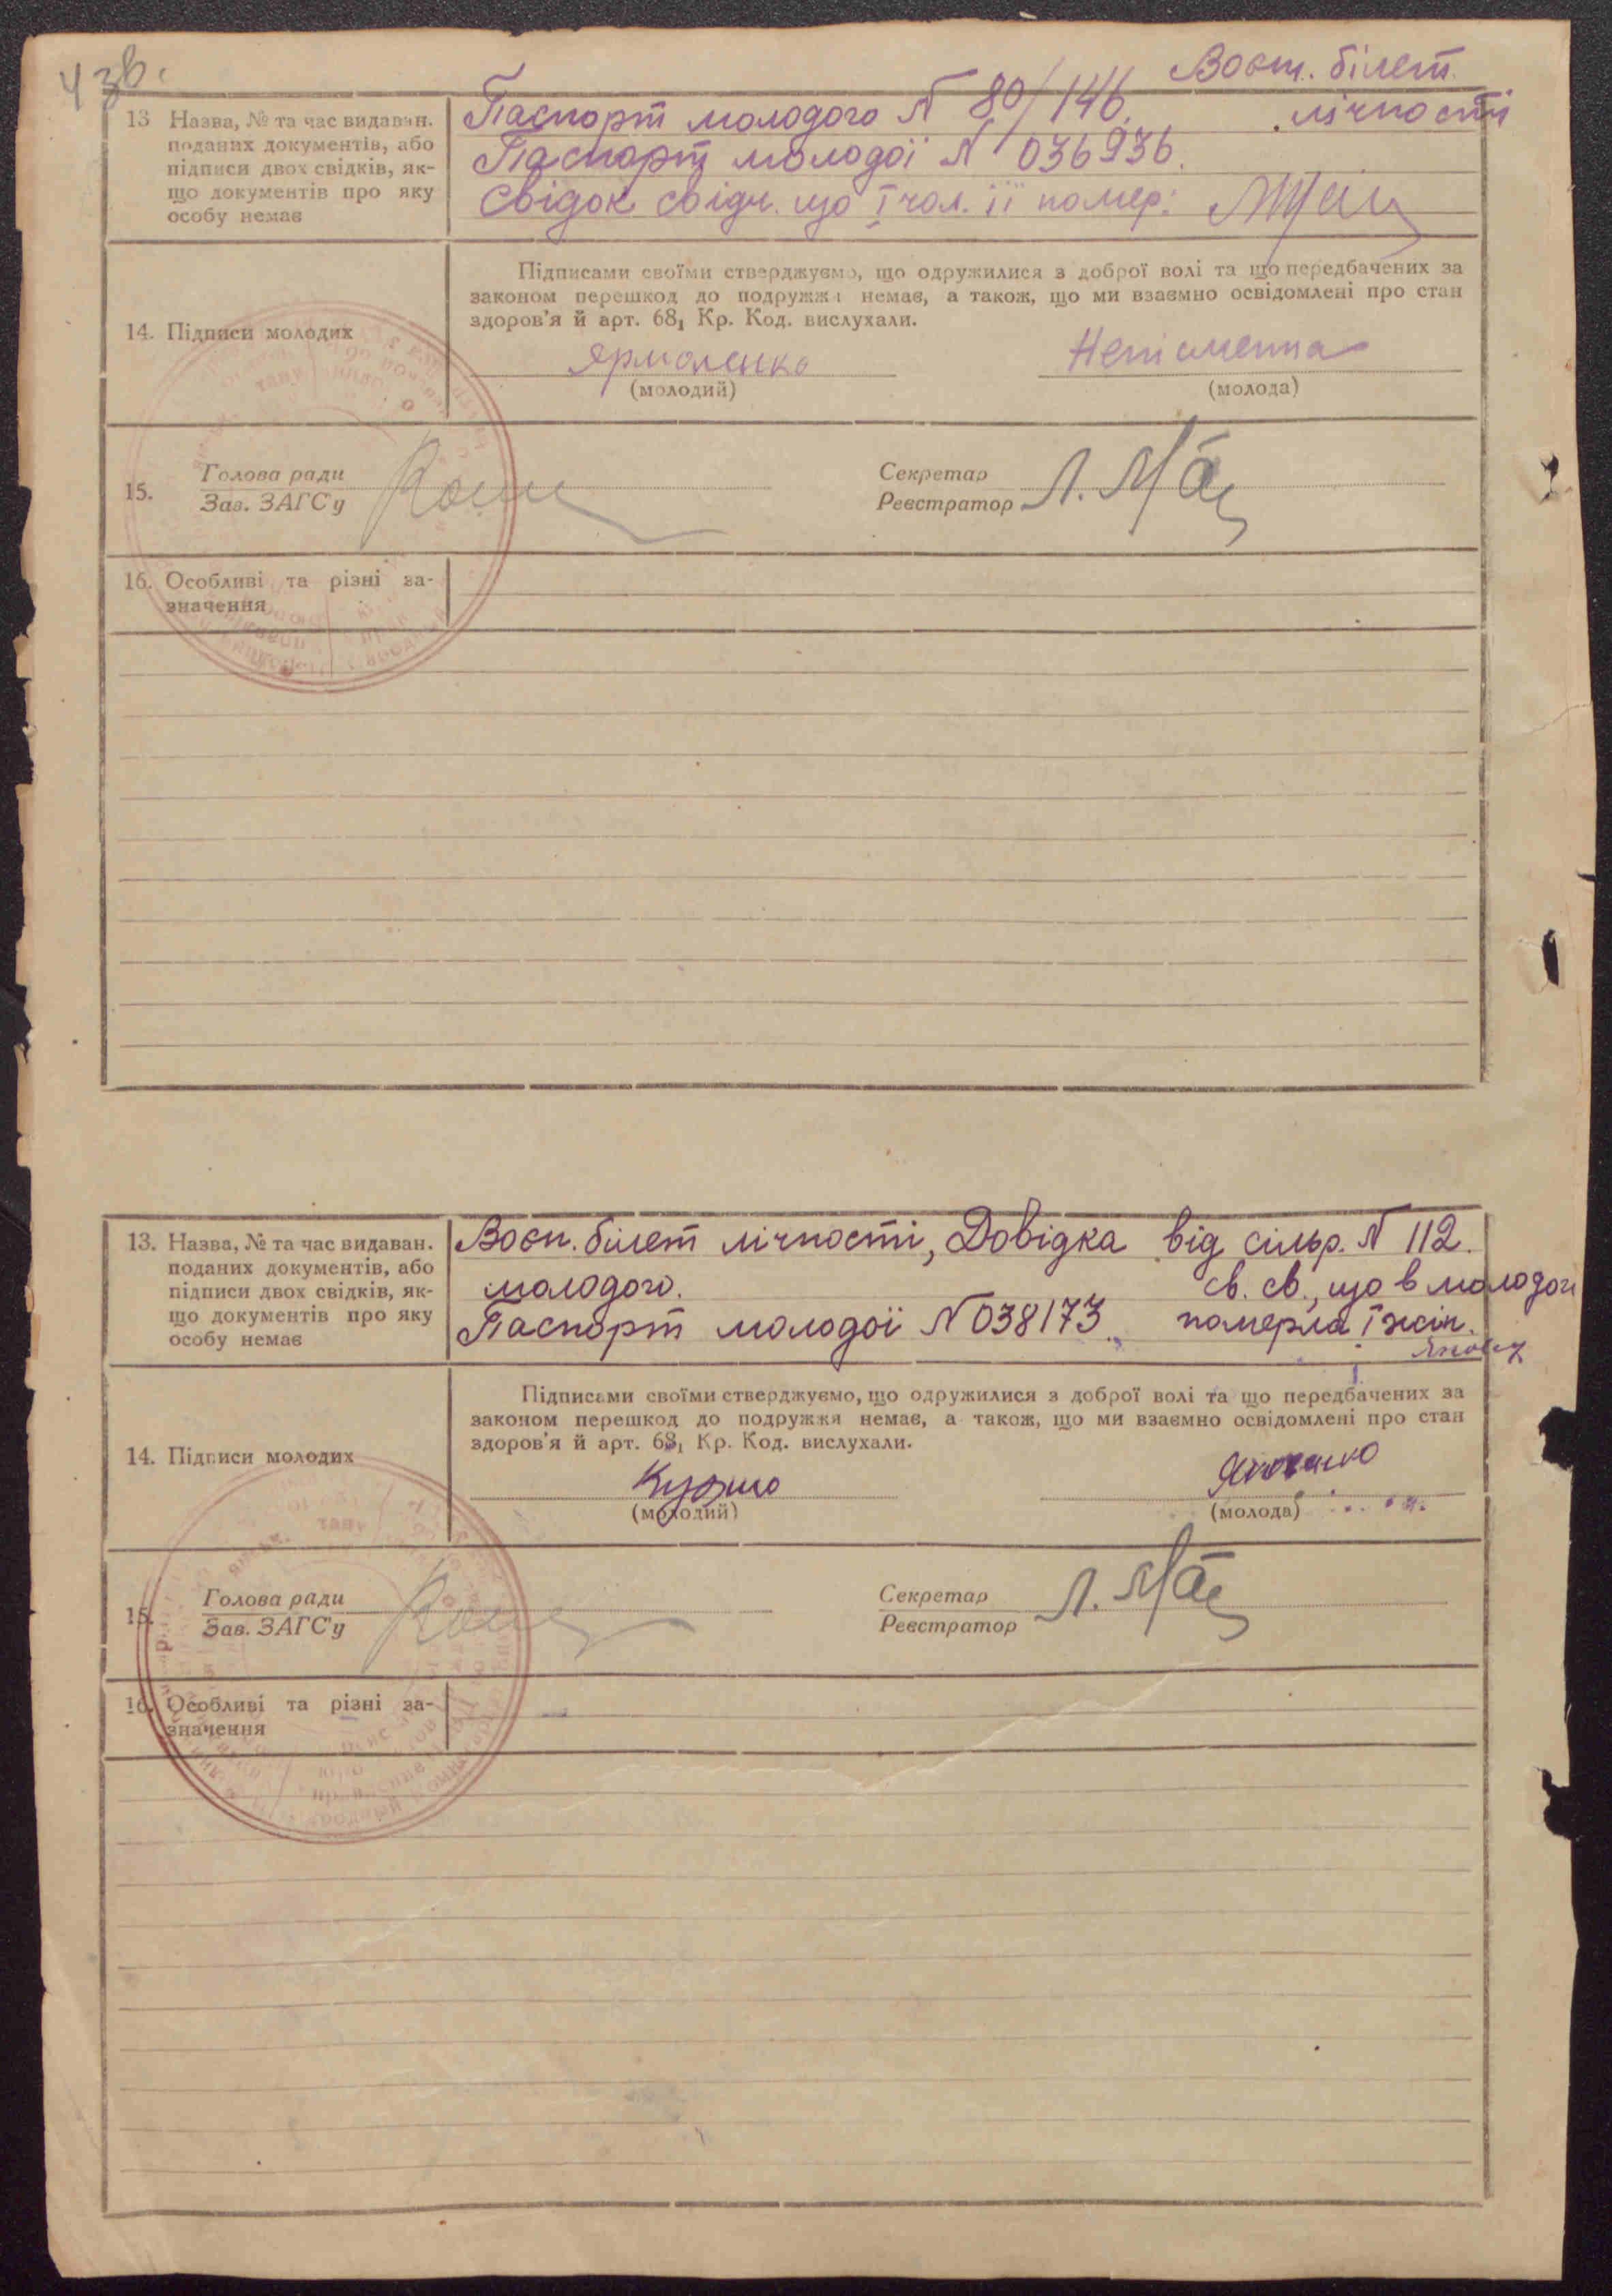 4 зв.
Воєн. білет
13 Назва, № та час видаван. поданих документів, або підписи двох свідків, якщо документів про яку особу немає
Паспорт молодого N 80/146. лічності
Паспорт молодої N 036936.
Свідок свідч. що І чол. її помер:
Підписами своїми стверджуємо, що одружилися з доброї волі та що передбачених за
законом перешкод до подружжя немає, а також, що ми взаємно освідомлені про стан
здоров'я й арт. 68₁ Кр. Код. вислухали.
14. Підписи молодих
Ярмоленко
Неписменна
(молодий)
(молода)
15.
Голова ради
Зав. ЗАГС'у
Секретар
Реєстратор
16. Особливі та різні за-
значення
13. Назва, № та час видаван.
поданих документів, або
підписи двох свідків, як-
що документів про яку
особу немає
Воєн. білет лічності, Довідка від сільр. N 112.
молодого. св. св., що в молодого
Паспорт молодої N 038173. померла І жін.
Підписами своїми стверджуємо, що одружилися з доброї волі та що передбачених за
законом перешкод до подружжя немає, а також, що ми взаємно освідомлені про стан
здоров'я й арт. 68₁ Кр. Код. вислухали.
14. Підписи молодих
(молодий)
(молода)
15.
Голова ради
Зав. ЗАГС'у
Секретар
Реєстратор
16. Особливі та різні за-
значення